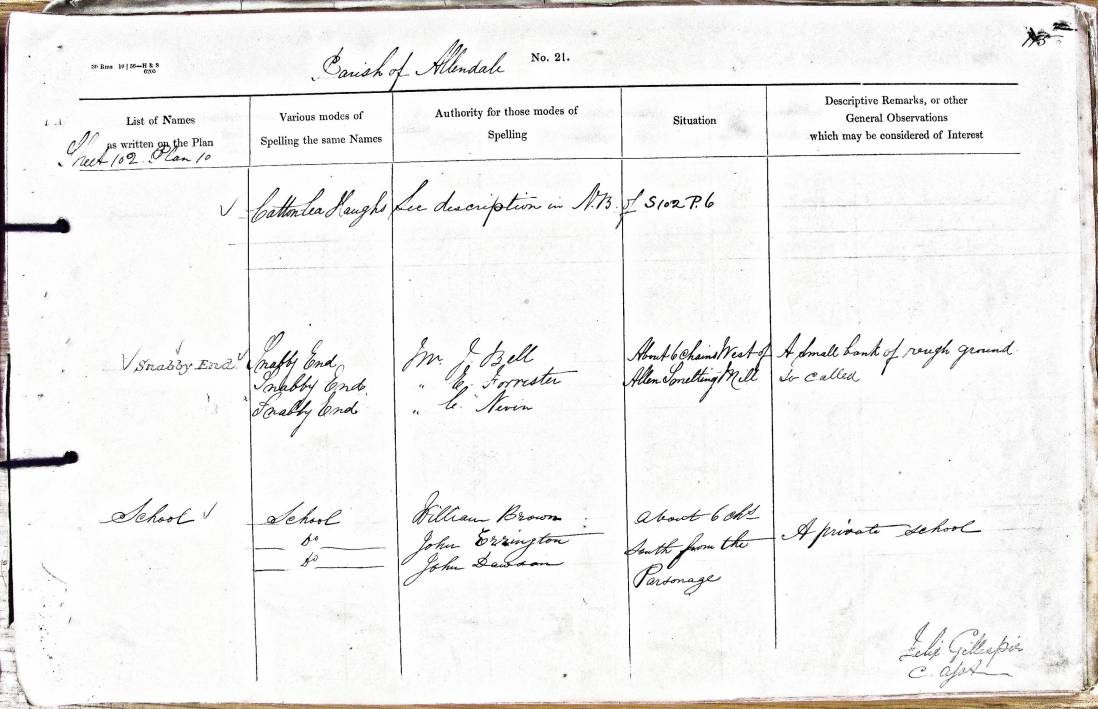 30 Rms 10 | 56—H & S
6205
Parish of Allendale
No. 21.
List of Names
as written on the Plan
Various modes of
Spelling the same Names
Authority for those modes of
Spelling
Situation
Descriptive Remarks, or other
General Observations
which may be considered of Interest
Sheet 102 Plan 10
Catton Lea Haughs See description in N.B. of S 102 P. 6
Snabby End Snabby End Mr. J. Bell About 6 chains West of A small bank of rough ground
Snabby End " E. Forrester Allen Smelting Mill so called
Snabby End " C. Nevin
School School William Brown about 6 chs
Do John Errington South from the A private school
Do John Dawson Parsonage
Felix Gillespie
C. asst